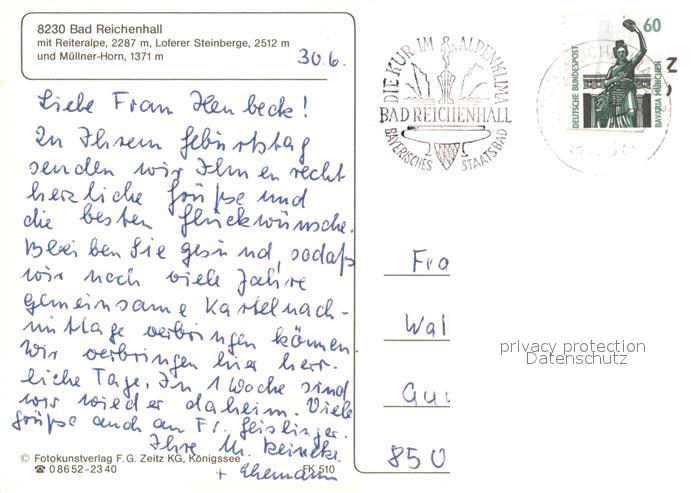 8230 Bad Reichenhall
mit Reiteralpe, 2287 m, Loferer Steinberge, 2512 m
und Müllner-Horn, 1371 m
30.6.
Liebe Frau Henbeck!
Zu Ihrem Geburtstag
senden wir Ihnen recht
herzliche Grüße und
die besten Glückwünsche.
Bleiben Sie gesund, sodaß
wir noch viele Jahre
gemeinsame Kartelnach-
mittage verbringen können.
Wir verbringen hier herr-
liche Tage. In 1 Woche sind
wir wieder daheim. Viele
Grüße auch an Fr. Geislinger.
Ihre M. Reineke
+ Ehemann
© Fotokunstverlag F. G. Zeitz KG, Königssee
FK 510
☎ 0 86 52 - 23 40
DIE KUR IM ALPENKLIMA
BAD REICHENHALL
BAYERISCHES STAATSBAD
DEUTSCHE BUNDESPOST
60
BAVARIA MÜNCHEN
Fra
Wal
Gu
850
privacy protection
Datenschutz